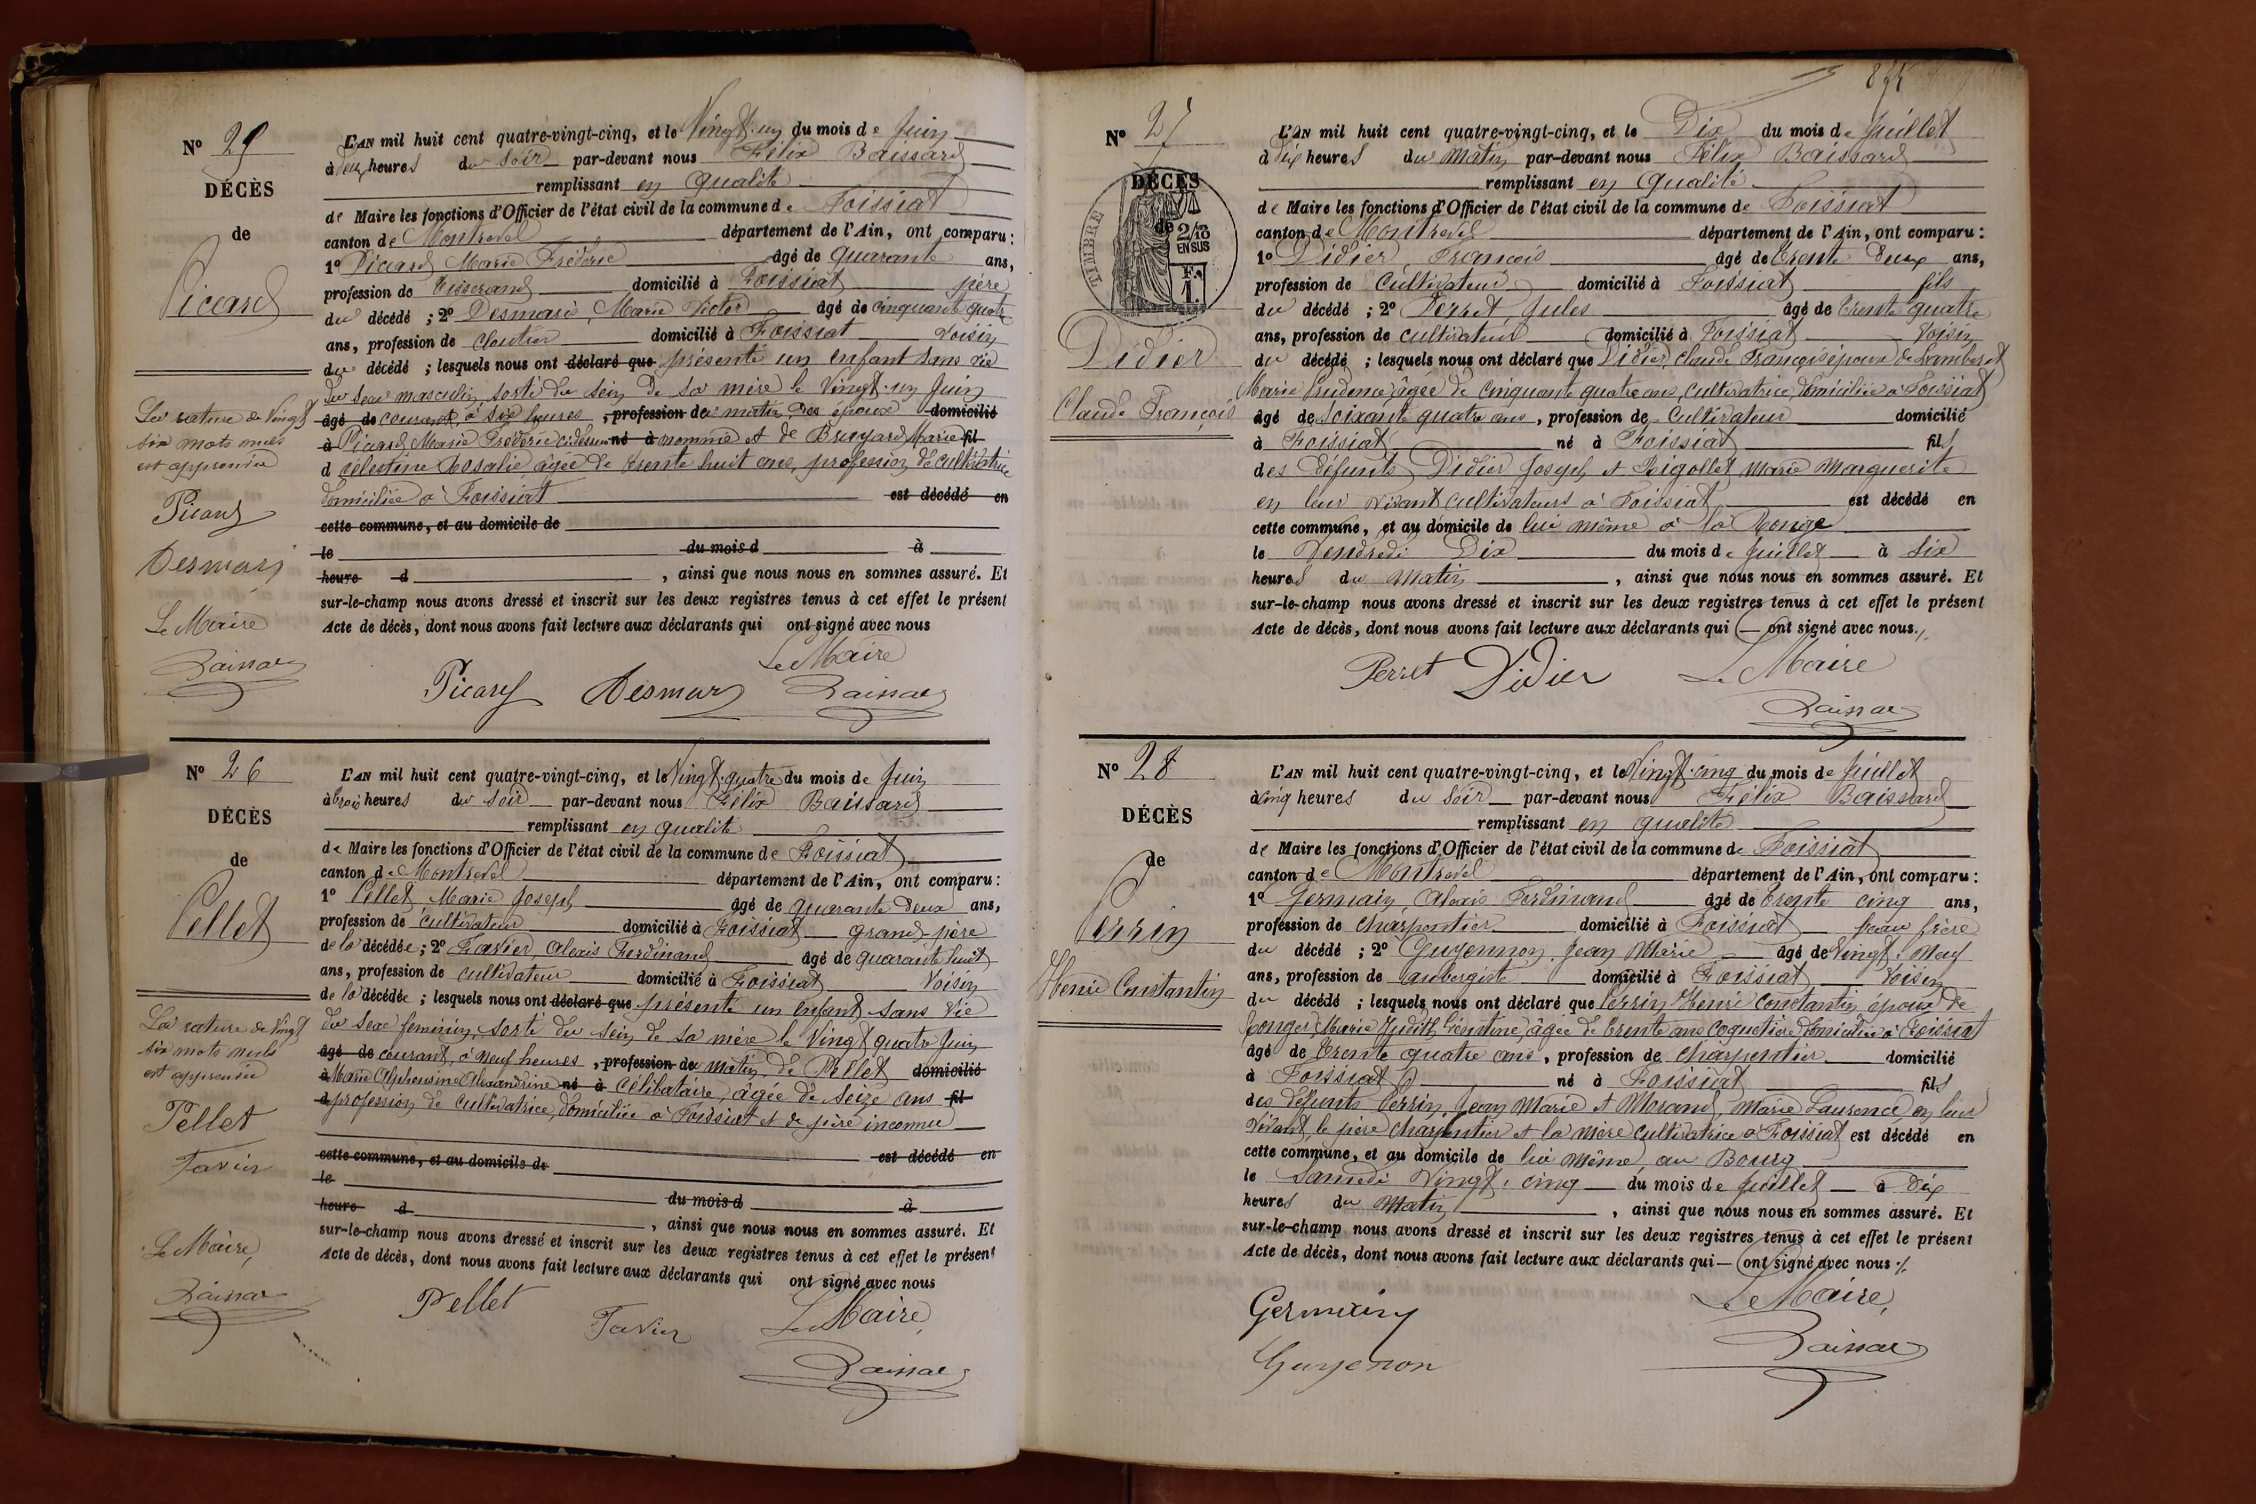 Nº 25
DÉCÈS
de
Picard
La rature de Vingt
six mots nuls
est approuvée
Picard
Desmaris
Le Maire
L'AN mil huit cent quatre-vingt-cinq, et le Vingt-un du mois de Juin
à deux heures du soir par-devant nous Félix Baissard
remplissant en qualité
de Maire les fonctions d'Officier de l'état civil de la commune de Foissiat
canton de Montrevel département de l'Ain, ont comparu :
1º Piccard Marie Frédéric âgé de quarante ans,
profession de Tisserand domicilié à Foissiat père
du décédé ; 2º Desmaris, Marie Victor âgé de cinquante quatre
ans, profession de cloutier domicilié à Foissiat voisin
du décédé ; lesquels nous ont déclaré que présenté un enfant sans vie
du sexe masculin, sorti du sein de sa mère le Vingt-un Juin
âgé de courant, à six heures, profession de du matin des époux domicilié
à Picard Marie Frédéric cidessus né à nommé et de Bruyard Marie fil
d célestine Rosalie âgée de trente huit ans, profession de cultivatrice
domiciliée à Foissiat est décédé en
cette commune, et au domicile de
le du mois d à
heure d , ainsi que nous nous en sommes assuré. Et
sur-le-champ nous avons dressé et inscrit sur les deux registres tenus à cet effet le présent
Acte de décès, dont nous avons fait lecture aux déclarants qui ont signé avec nous
Le Maire
Picard Desmaris
Nº 26
DÉCÈS
de
Pellet
La rature de Vingt
six mots nuls
est approuvée
Pellet
Favier
Le Maire,
L'AN mil huit cent quatre-vingt-cinq, et le Vingt-quatre du mois de Juin
à trois heures du soir par-devant nous Félix Baissard
remplissant en qualité
de Maire les fonctions d'Officier de l'état civil de la commune de Foissiat
canton de Montrevel département de l'Ain, ont comparu :
1º Pellet, Marie Joseph âgé de quarante deux ans,
profession de cultivateur domicilié à Foissiat grand-père
de la décédée ; 2º Favier, Alexis Ferdinand âgé de quarante huit
ans, profession de cultivateur domicilié à Foissiat Voisin
de la décédée ; lesquels nous ont déclaré que présenté un enfant sans vie
du sexe féminin, sorti du sein de sa mère le Vingt quatre Juin
âgé de courant, à neuf heures, profession de du matin, de Pellet domicilié
à Marie Alphonsine Alexandrine né à célibataire, âgée de seize ans fil
d profession de cultivatrice, domiciliée à Foissiat et de père inconnu
cette commune, et au domicile de est décédé en
le
heure d du mois d à
, ainsi que nous nous en sommes assuré. Et
sur-le-champ nous avons dressé et inscrit sur les deux registres tenus à cet effet le présent
Acte de décès, dont nous avons fait lecture aux déclarants qui ont signé avec nous
Pellet Favier Le Maire,
Nº 27
DÉCÈS
de
TIMBRE
2/10
EN SUS
F.
1.
Didier
Claude François
L'AN mil huit cent quatre-vingt-cinq, et le Dix du mois de Juillet
à dix heures du matin par-devant nous Félix Baissard
remplissant en qualité
de Maire les fonctions d'Officier de l'état civil de la commune de Foissiat
canton de Montrevel département de l'Ain, ont comparu :
1º Didier, François âgé de trente deux ans,
profession de Cultivateur domicilié à Foissiat fils
du décédé ; 2º Perret, Jules âgé de trente quatre
ans, profession de cultivateur domicilié à Foissiat voisin
du décédé ; lesquels nous ont déclaré que Didier, Claude François époux de Lamberet
Marie Prudence âgée de cinquante quatre ans, cultivatrice, domiciliée à Foissiat
âgé de soixante quatre ans, profession de Cultivateur domicilié
à Foissiat né à Foissiat fils
des défunts Didier Joseph et Rigollet Marie Marguerite
en leur vivant cultivateurs à Foissiat est décédé en
cette commune, et au domicile de lui même à la
le Vendredi Dix du mois de Juillet à six
heures du matin , ainsi que nous nous en sommes assuré. Et
sur-le-champ nous avons dressé et inscrit sur les deux registres tenus à cet effet le présent
Acte de décès, dont nous avons fait lecture aux déclarants qui ont signé avec nous.
Perret Didier Le Maire
Nº 28
DÉCÈS
de
Perrin
Henri Constantin
L'AN mil huit cent quatre-vingt-cinq, et le Vingt-cinq du mois de Juillet
à cinq heures du soir par-devant nous Félix Baissard
remplissant en qualité
de Maire les fonctions d'Officier de l'état civil de la commune de Foissiat
canton de Montrevel département de l'Ain, ont comparu :
1º Germain, Alexis Ferdinand âgé de trente cinq ans,
profession de charpentier domicilié à Foissiat beau frère
du décédé ; 2º Guyennon, Jean Marie âgé de Vingt-neuf
ans, profession de aubergiste domicilié à Foissiat voisin
du décédé ; lesquels nous ont déclaré que Perrin Henri Constantin époux de
Marie Judith Léontine, âgée de trente ans coquetière domiciliée à Foissiat
âgé de trente quatre ans, profession de charpentier domicilié
à Foissiat né à Foissiat fils
des défunts Perrin, Jean Marie et Morand, Marie Laurence, en leur
vivant, le père charpentier et la mère cultivatrice à Foissiat est décédé en
cette commune, et au domicile de lui même, au Bourg
le Samedi Vingt-cinq du mois de Juillet à dix
heures du matin , ainsi que nous nous en sommes assuré. Et
sur-le-champ nous avons dressé et inscrit sur les deux registres tenus à cet effet le présent
Acte de décès, dont nous avons fait lecture aux déclarants qui ont signé avec nous
Germain Le Maire,
Guyenon